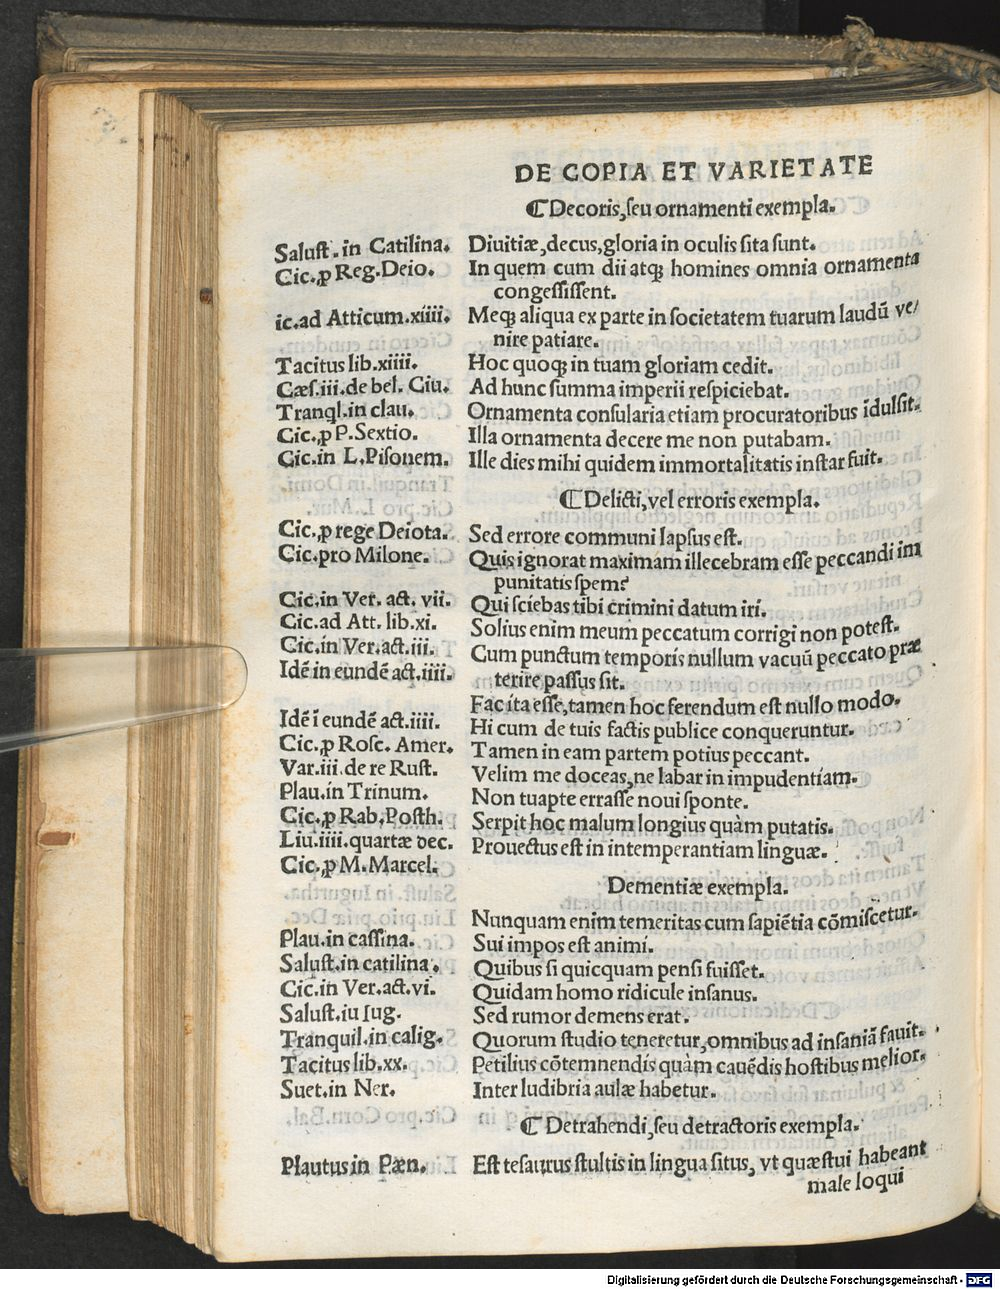 DE COPIA ET VARIETATE
⁋Decoris, seu ornamenti exempla.
Salust. in Catilina. Diuitiæ, decus, gloria in oculis sita sunt.
Cic. ꝓ Reg. Deio. In quem cum dii atqꝫ homines omnia ornamenta
congessissent.
ic. ad Atticum. xiiii. Meqꝫ aliqua ex parte in societatem tuarum laudū ve/
nire patiare.
Tacitus lib. xiiii. Hoc quoqꝫ in tuam gloriam cedit.
Cæs. iii. de bel. Ciu. Ad hunc summa imperii respiciebat.
Tranql. in clau. Ornamenta consularia etiam procuratoribus īdulsit.
Cic. ꝓ P. Sextio. Illa ornamenta decere me non putabam.
Cic. in L. Pisonem. Ille dies mihi quidem immortalitatis instar fuit.
⁋Delicti, vel erroris exempla.
Cic. ꝓ rege Deiota. Sed errore communi lapsus est.
Cic. pro Milone. Quis ignorat maximam illecebram esse peccandi im
punitatis spem?
Cic. in Ver. act. vii. Qui sciebas tibi crimini datum iri.
Cic. ad Att. lib. xi. Solius enim meum peccatum corrigi non potest.
Cic. in Ver. act. iii. Cum punctum temporis nullum vacuū peccato præ
Idē in eundē act. iiii. terire passus sit.
Fac ita esse, tamen hoc ferendum est nullo modo.
Idē ī eundē act. iiii. Hi cum de tuis factis publice conqueruntur.
Cic. ꝓ Rosc. Amer. Tamen in eam partem potius peccant.
Var. iii. de re Rust. Velim me doceas, ne labar in impudentiam.
Plau. in Trinum. Non tuapte errasse noui sponte.
Cic. ꝓ Rab. Posth. Serpit hoc malum longius quàm putatis.
Liu. iiii. quartæ dec. Prouectus est in intemperantiam linguæ.
Cic. ꝓ M. Marcel.
Dementiæ exempla.
Nunquam enim temeritas cum sapiētia cōmiscetur.
Plau. in cassina. Sui impos est animi.
Salust. in catilina. Quibus si quicquam pensi fuisset.
Cic. in Ver. act. vi. Quidam homo ridicule insanus.
Salust. iu Iug. Sed rumor demens erat.
Tranquil. in calig. Quorum studio teneretur, omnibus ad insaniā fauit.
Tacitus lib. xx. Petilius cōtemnendis quàm cauēdis hostibus melior.
Suet. in Ner. Inter ludibria aulæ habetur.
⁋Detrahendi, seu detractoris exempla.
Plautus in Pæn. Est tesaurus stultis in lingua situs, vt quæstui habeant
male loqui
Digitalisierung gefördert durch die Deutsche Forschungsgemeinschaft - DFG